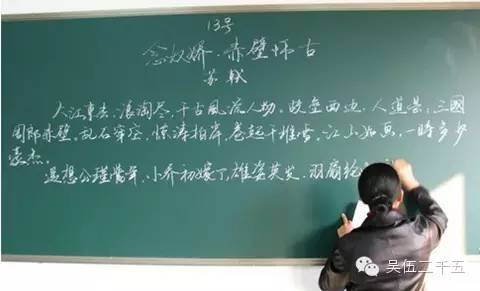 13号
念奴娇·赤壁怀古
苏轼
大江東去，浪淘尽，千古風流人物。故垒西边，人道是，三國
周郎赤壁。乱石穿空，惊涛拍岸，卷起千堆雪。江山如画，一時多少
豪杰。
遥想公瑾當年，小乔初嫁了，雄姿英发。羽扇纶
吴伍二千五